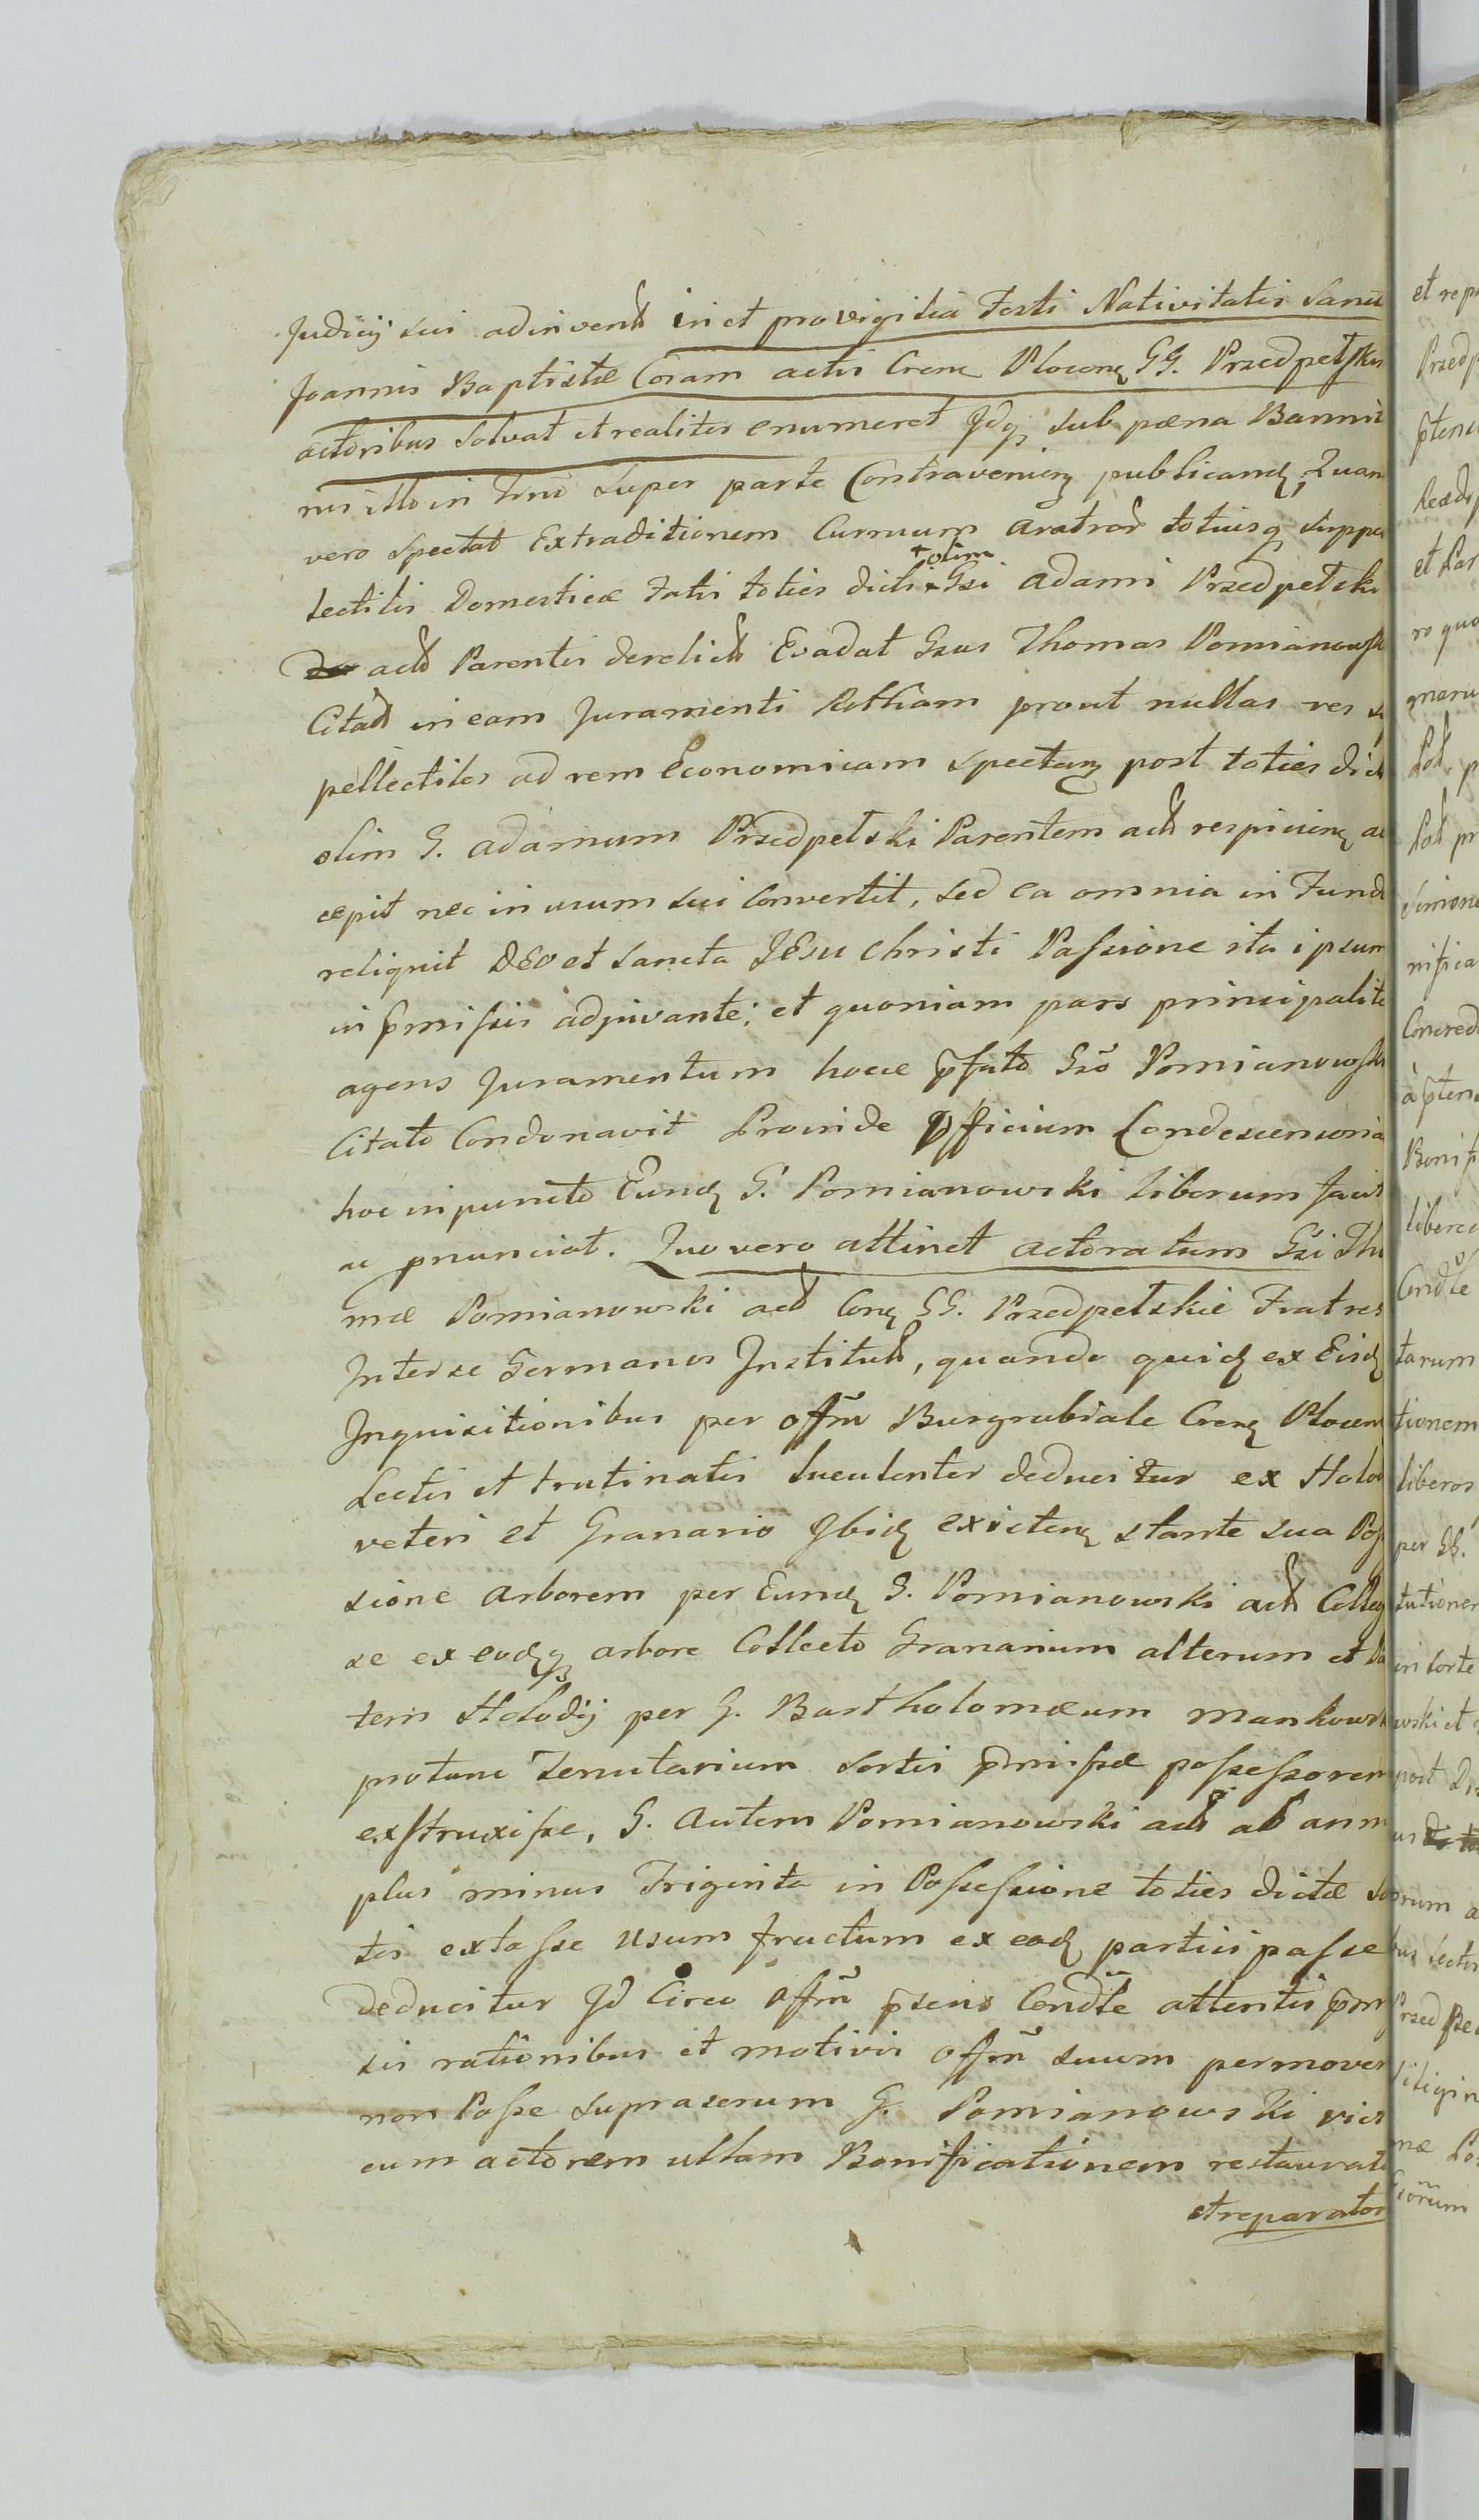 Judicij sui adinvent in et pro vigilia Festi Nativitatis Sanct
Joannis Baptistæ Coram actis Crens Plocens GG. Przedpełskis
actoribus solvat et realiter enumeret Idq sub pœna Banni
nis illo in Trno super parte Contravenien publicand, Quan
vero spectat Extraditionem Curruum aratror totiusq suppe
lectilis Domesticæ Fatis toties dicti + olim Gsi Adami Przedpełski
act Parentis derelict Evadat Gsus Thomas Pomianowsk
Citat in eam Juramenti Rotham prout nullas res su
pellectiles ad rem Economicam spectan post toties dict
olim G. Adamum Przedpełski Parentem act respicien ac
cepit nec in usum sui Convertit, sed ea omnia in Fund
reliqnit DEO et Sancta JEsu Christi Passione ita ipsum
in p̃missis adjuvante; et quoniam pars principalite
agens Juramentum hocce p̃fato Gso Pomianowski
Citato Condonavit Proinde Officium Condescensoria
hoc in puncto Eund G. Pomianowski liberum facit
ac pnunciat. Quo vero attinet actoratum Gsi Tho
mæ Pomianowski act Con GG. Przedpełskie Fratres
Inter se Germanos Institut, quando quid ex Eisd
Inquisitionibus per offm̃ Burgrabiale Crens Plocen
Lectis et trutinatis luculenter deducitur ex Holod
veteri et Granario Ibid existen stante sua Pos
sione arborem per Eund G. Pomianowski act Colleg
se ex eodq arbore Collecto Granarium alterum et Pa
tem Holodij per G. Bartholomæum Mankowsk
pro tunc Tenutarium Sortis p̃missæ possessorem
exstruxisse, G. Autem Pomianowski act ab ann
plus minus Triginta in Possessione toties dictæ So
tis extasse Usum fructum ex ead participasse
deducitur Id Circo Offm̃ p̃sens Condl̃e attentis p̃m
sis rationibus et motivis offm̃ suum permoven
non Posse suprasrum G. Pomianowski vici
cum actorem ullam Bonificationem restaurat
et reparator